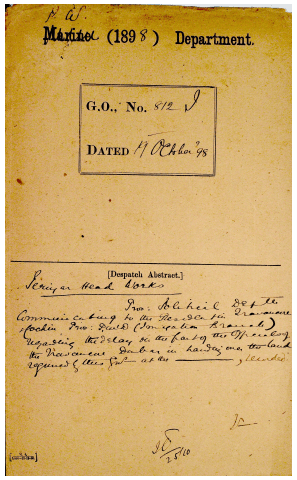 P. W.
Marine (1898) Department.
G.O., No. 812 I
DATED 19th October '98
[Despatch Abstract.]
Periyar Head Works
Communicating to the Resident in Travancore
& Cochin Pro: P.W.D (Irrigation Branch)
regarding the delay on the part of the Officers of
the Travancore Durbar in handing over the land
required by this Govt at the
25/10